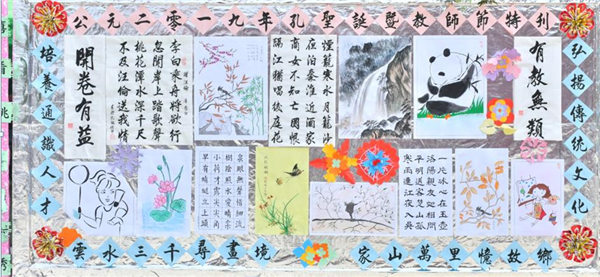 公元二零一九年孔聖誕暨教師節特刊
弘揚傳統文化
培養通識人才
有教無類
煙籠寒水月籠沙
夜泊秦淮近酒家
商女不知亡國恨
隔江猶唱後庭花
李白乘舟將欲行
忽聞岸上踏歌聲
桃花潭水深千尺
不及汪倫送我情
開卷有益
一片冰心在玉壺
洛陽親友如相問
平明送客楚山孤
寒雨連江夜入吳
泉眼無聲惜細流
樹陰照水愛晴柔
小荷才露尖尖角
早有蜻蜓立上頭
雲水三千尋畫境
家山萬里憶故鄉